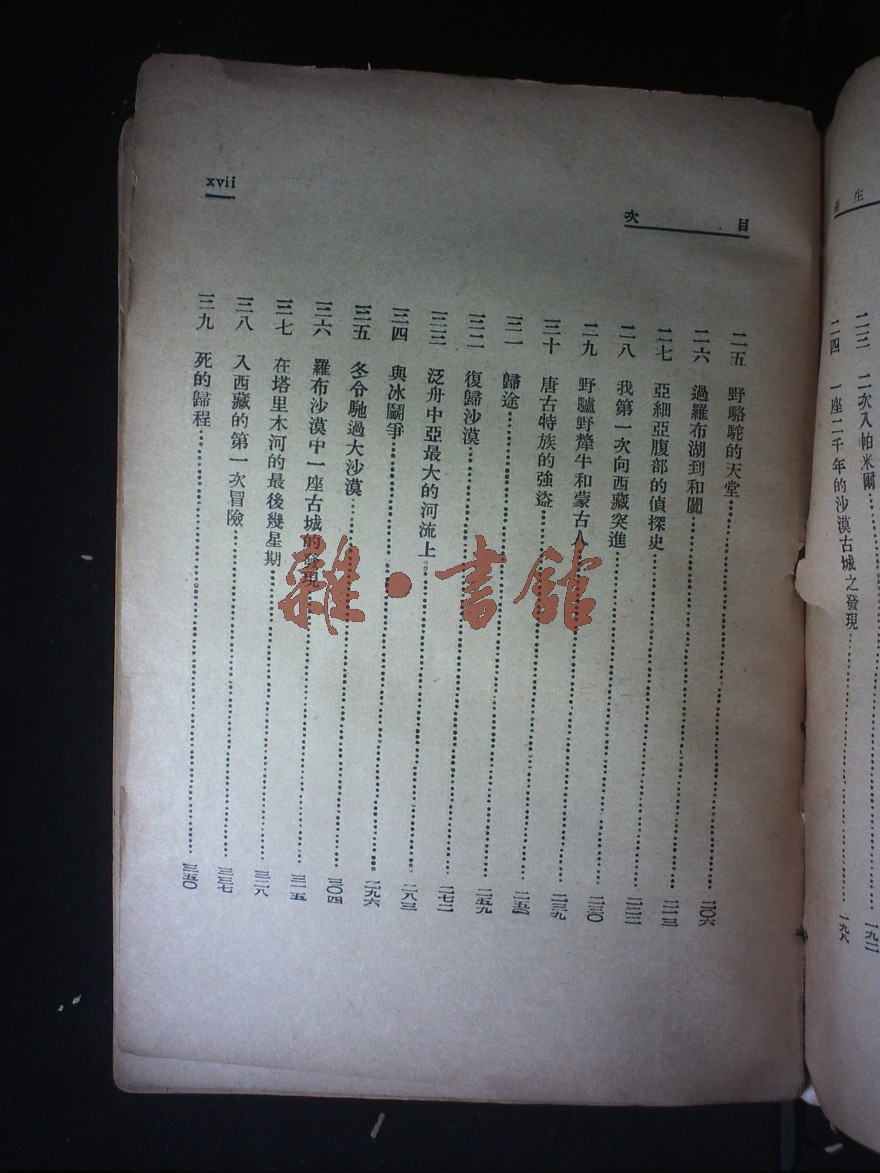 生
二三 二次入帕米爾……一九二
二四 一座二千年的沙漠古城之發現……一九八
目次
二五 野駱駝的天堂……二〇六
二六 過羅布湖到和闐……二一三
二七 亞細亞腹部的偵探史……二二二
二八 我第一次向西藏突進……二三〇
二九 野驢野犛牛和蒙古人……二三九
三十 唐古特族的強盜……
三一 歸途……二五九
三二 復歸沙漠……二七二
三三 泛舟中亞最大的河流上……二八三
三四 與冰鬭爭……二九六
三五 冬令馳過大沙漠……三〇四
三六 羅布沙漠中一座古城的發現……三一五
三七 在塔里木河的最後幾星期……三二八
三八 入西藏的第一次冒險……三三七
三九 死的歸程……三五〇
xvii
雜·書館